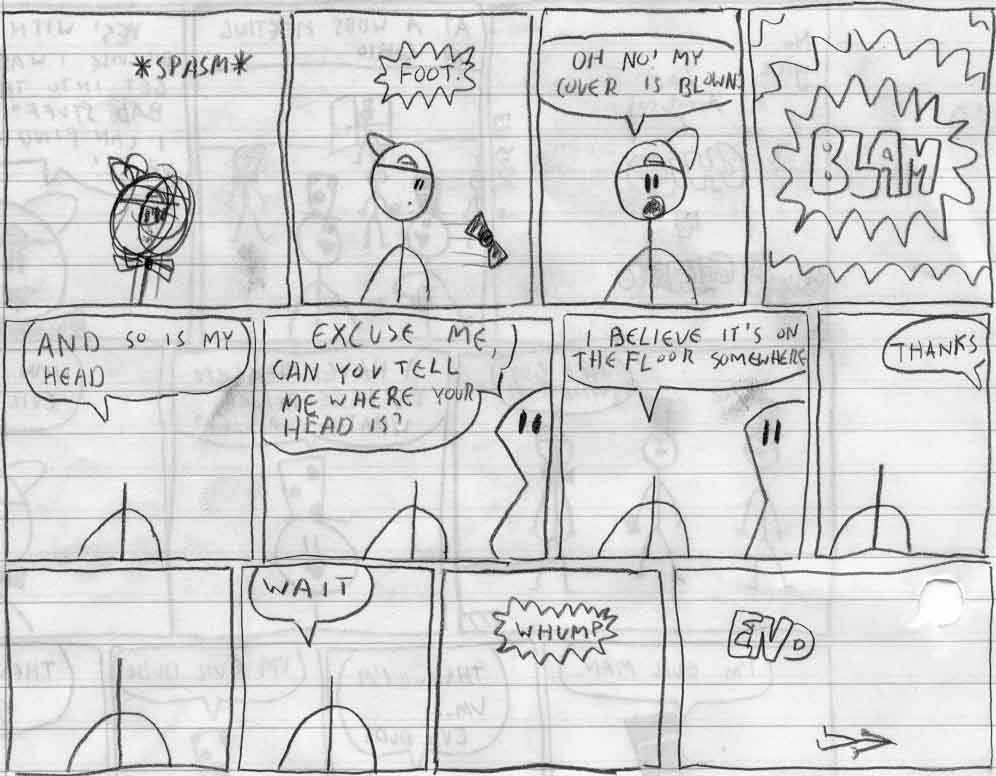 *SPASM*
FOOT.
OH NO! MY
COVER IS BLOWN.
BLAM
AND SO IS MY
HEAD
EXCUSE ME,
CAN YOU TELL
ME WHERE YOUR
HEAD IS?
I BELIEVE IT'S ON
THE FLOOR SOMEWHERE
THANKS
WAIT
WHUMP
END